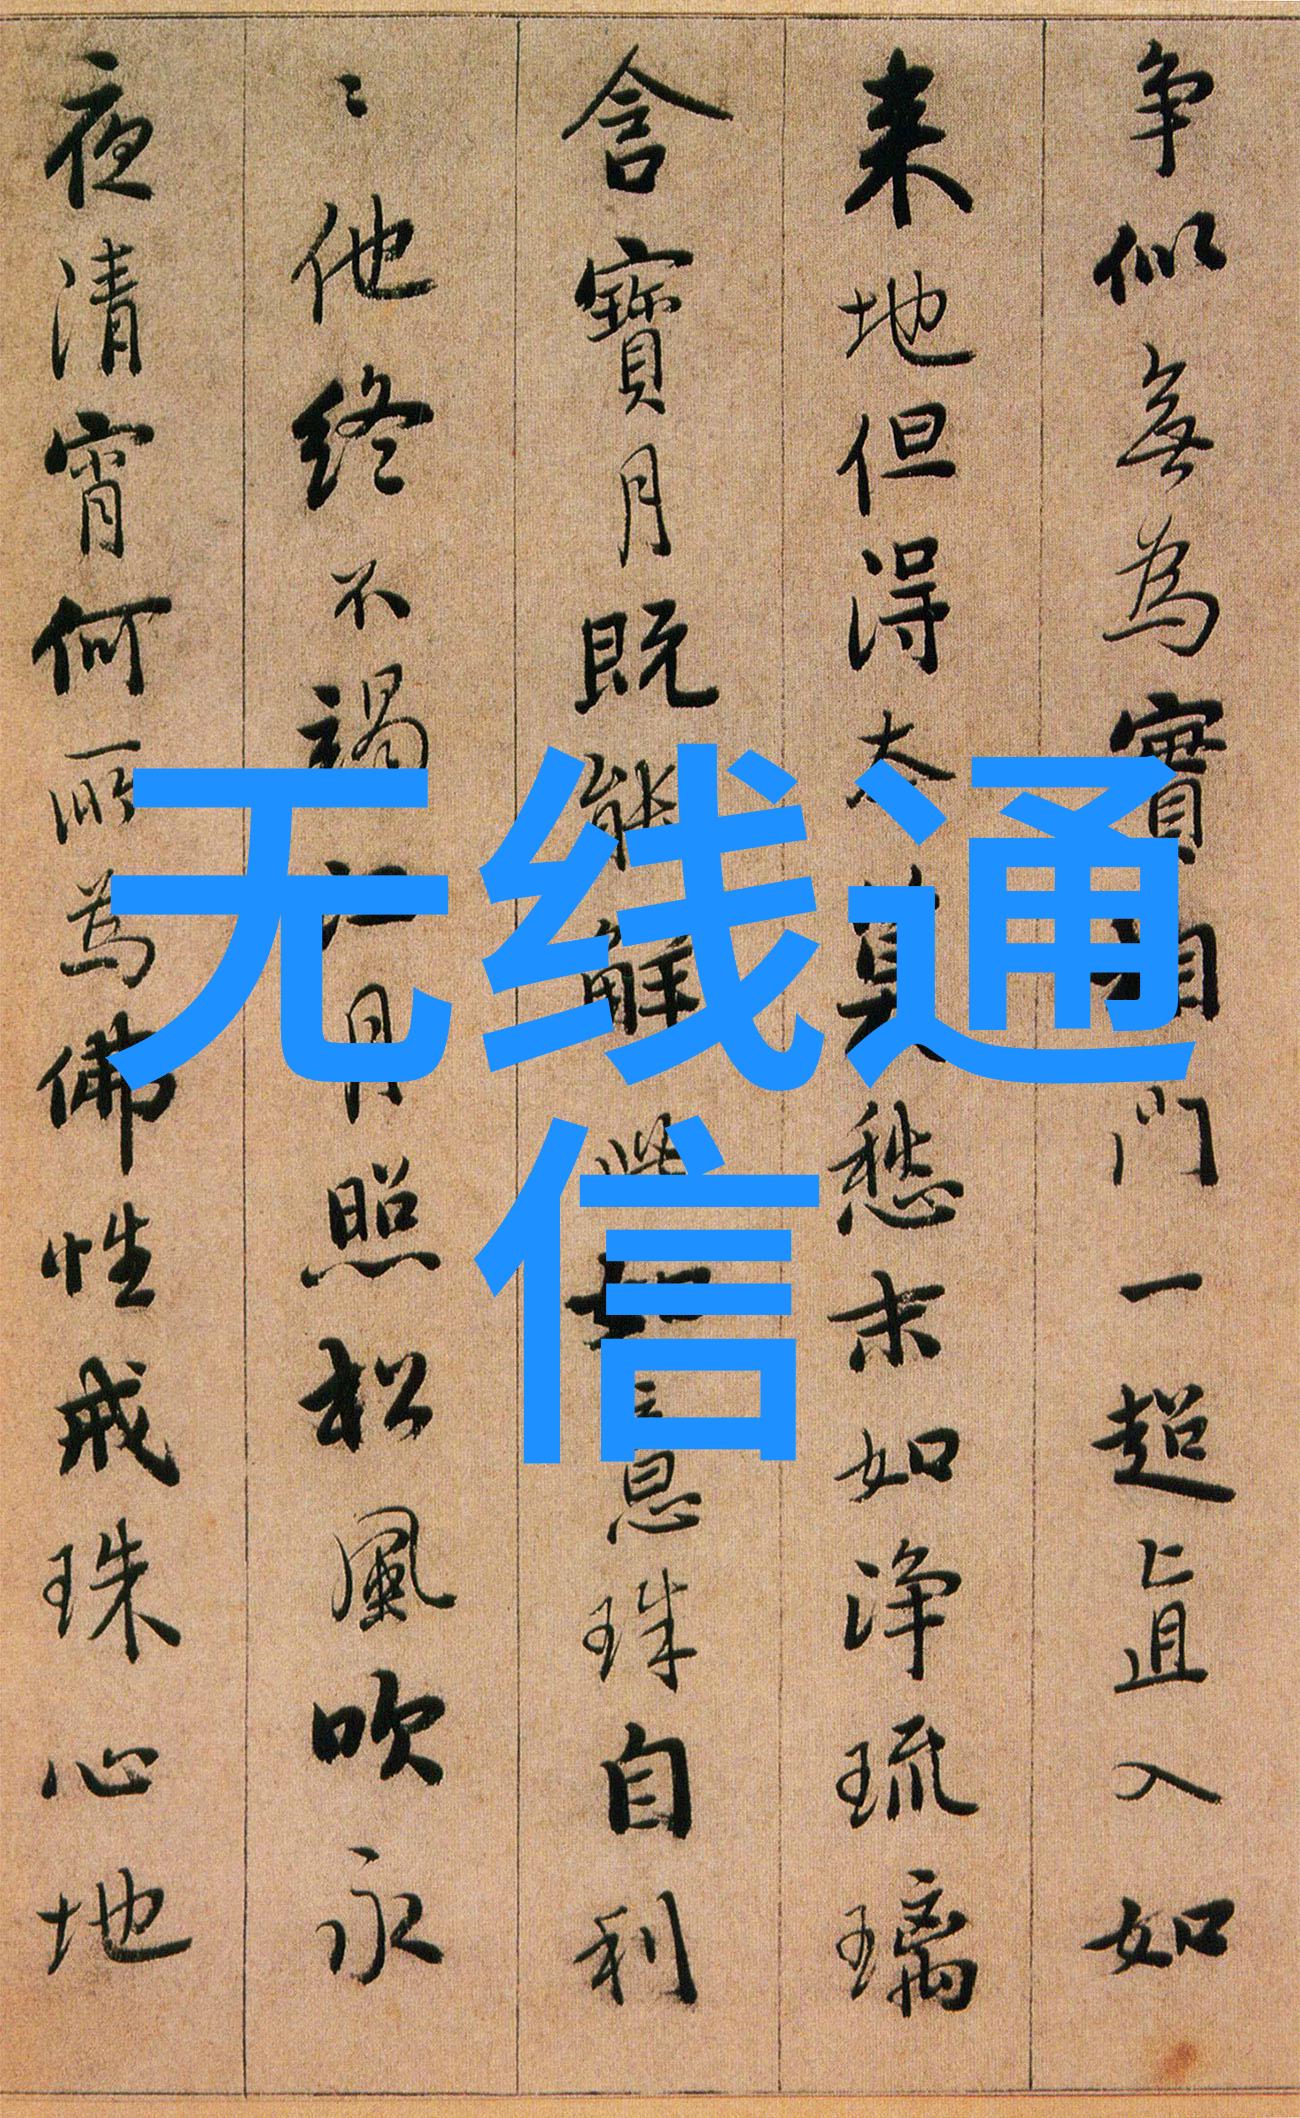 争似無為實相門一超直入如
来地但得本莫愁末如浄琉璃
含寶月既能解此如意珠自利
〻他終不竭江月照松風吹永
夜清宵何所為佛性戒珠心地
无线通
信